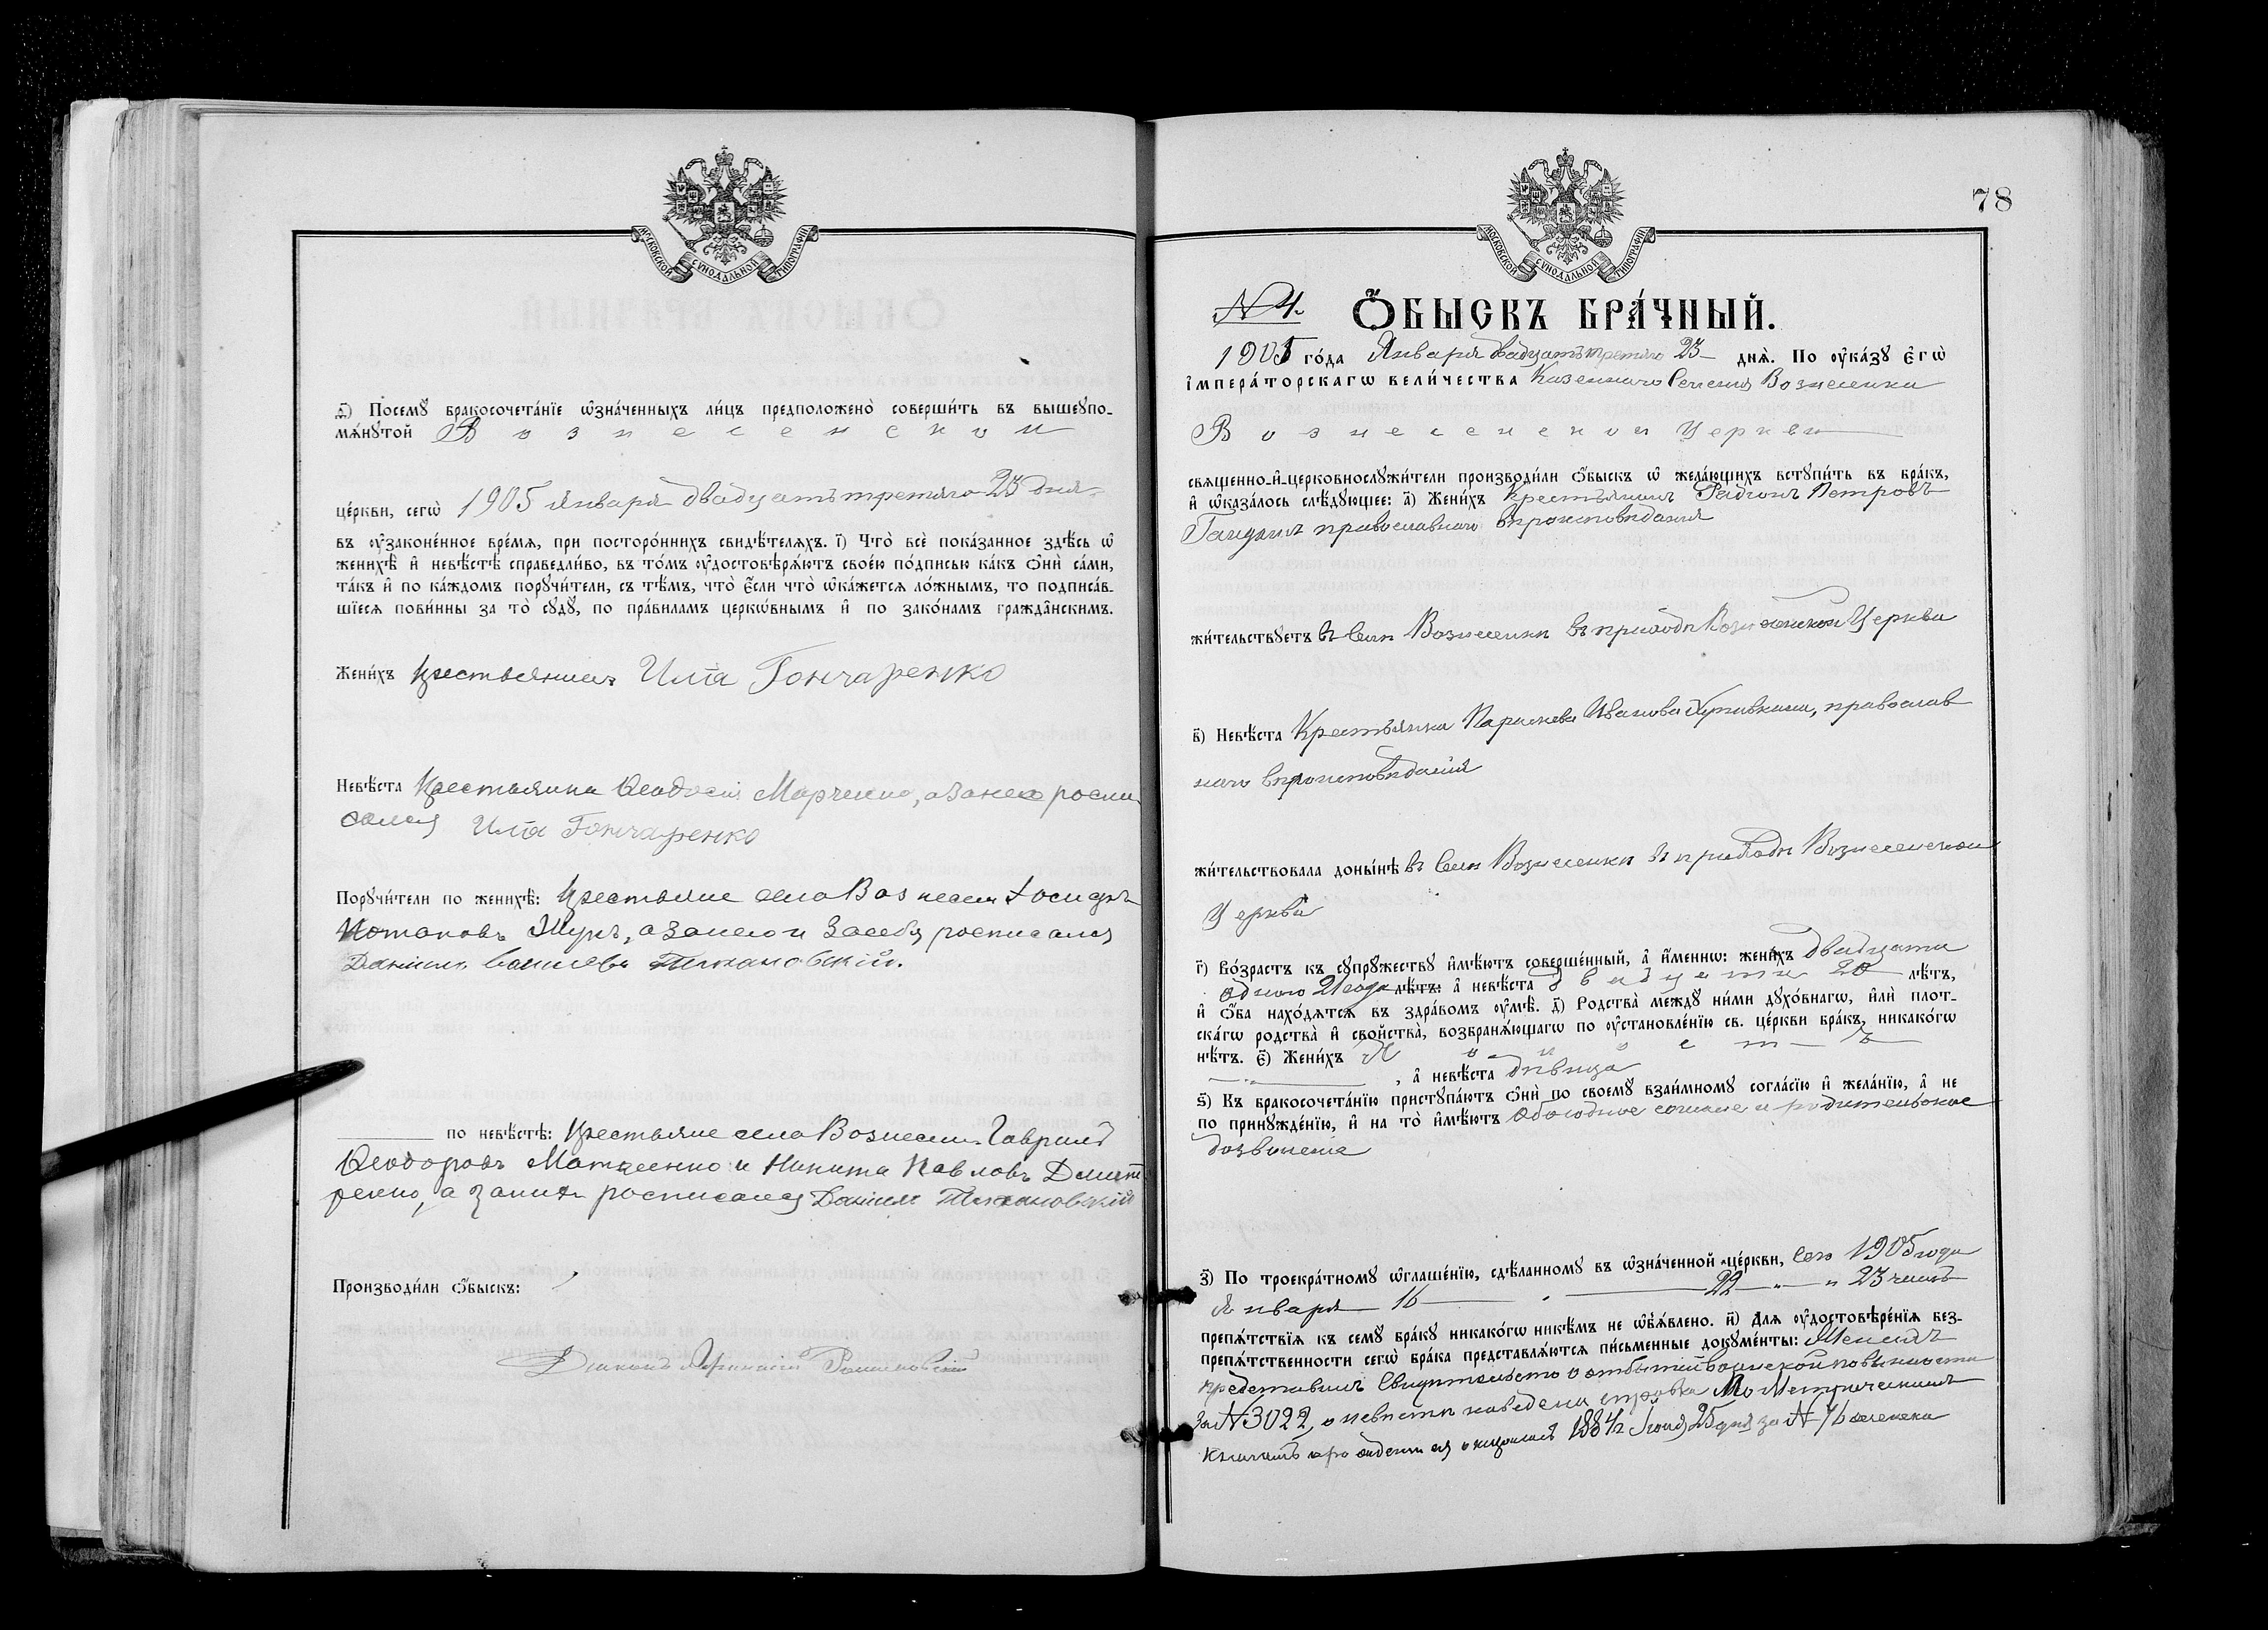 МОСКОВСКОЙ СѴНОДАЛЬНОЙ ТИПОГРАФІИ
Посемꙋ̀ бракосочета́нїе ѡ҆зна́ченныхъ ли́цъ предположено̀ соверши́ть въ вышеꙋпо-
мѧ́нꙋтой Вознесенской
це́ркви, сегѡ̀ 1905 января двадцать третяго 23 дня
въ ᲂу҆зако́ненное вре́мѧ, при посторо́ннихъ свидѣ́телѧхъ. і҃) Что̀ всѐ пока́занное здѣ́сь ѡ҆
женихѣ̀ и҆ невѣ́стѣ справедли́во, въ то́мъ ᲂу҆достовѣрѧ́ютъ свое́ю по́дписью ка́къ ѻ҆нѝ са́ми,
та́къ и҆ по ка́ждомъ порꙋчи́тели, съ тѣ́мъ, что̀ є҆́сли что̀ ѡ҆ка́жетсѧ ло́жнымъ, то подписа́в-
шїесѧ пови́нны за то̀ сꙋдꙋ̀, по пра́виламъ церкѡ́внымъ и҆ по зако́намъ гражда̑нскимъ.
Жени́хъ крестьянинъ Илія Гончаренко
Невѣ́ста крестьянка Ѳеодосія Марченко, а за нее роспи
сался Илія Гончаренко
Порꙋчи́тели по женихѣ̀: крестьяне села Вознесен Іосифъ
Потаповъ Жукъ, а за него и за себя росписался
Даніилъ
по невѣ́стѣ: крестьяне села Вознесен Гавріилъ
Ѳеодоровъ Матвеенко и Никита Павловъ Дмит
ренко, а за нихъ росписался Даніилъ
Производи́ли ѻ҆́быскъ:
Діаконъ Афанасій
78
МОСКОВСКОЙ СѴНОДАЛЬНОЙ ТИПОГРАФІИ
N 4. Ѻ҆́БЫСКЪ БРА́ЧНЫЙ.
1905 го́да Января двадцать третяго 23 днѧ̀. По ᲂу҆ка́зꙋ є҆гѡ̀
і҆мпера́торскагѡ вели́чества Казеннаго Селенія Вознесенки
Вознесенской Церкви
свѧщенно-и҆-церковнослꙋжи́тели производи́ли ѻ҆́быскъ ѡ҆ жела́ющихъ встꙋпи́ть въ бра́къ,
и҆ ѡ҆каза́лось слѣ́дꙋющее: а҃) Жени́хъ Крестьянинъ Радіонъ Петровъ
православнаго вѣроисповѣданія
жи́тельствꙋетъ въ селѣ Вознесенкѣ въ приходѣ Вознесенской Церкви
в҃) Невѣ́ста Крестьянка Параскева Иванова православ
наго вѣроисповѣданія
жи́тельствовала доны́нѣ въ селѣ Вознесенкѣ въ приходѣ Вознесенской
Церкви
г҃) Во́зрастъ къ сꙋпрꙋ́жествꙋ и҆мѣ́ютъ соверше́нный, а҆ и҆́меннѡ: жени́хъ двадцати
одного 21 года лѣ́тъ: а҆ невѣ́ста двадцати 20 лѣ́тъ,
и҆ ѻ҆́ба нахо́дѧтсѧ въ здра́вомъ ᲂу҆мѣ̀. д҃) Родства̀ междꙋ̀ ни́ми дꙋхо́внагѡ, и҆лѝ плот-
ска́гѡ родства̀ и҆ сво́йства̀, возбранѧ́ющагѡ по ᲂу҆становле́нїю св. це́ркви бра́къ, никако́гѡ
нѣ́тъ. є҃) Жени́хъ Холостъ
, а҆ невѣ́ста дѣвица
ѕ҃) Къ бракосочета́нїю пристꙋпа́ютъ ѻ҆нѝ по своемꙋ̀ взаи́мномꙋ согла́сїю и҆ жела́нїю, а҆ не
по принꙋжде́нїю, и҆ на то̀ и҆мѣ́ютъ обоюдное согласие и родительское
дозволеніе
з҃) По троекра́тномꙋ ѡ҆глаше́нїю, сдѣ́ланномꙋ въ ѡ҆зна́ченной це́ркви, сего 1905 года
Января 16 22 и 23 числъ
препѧ́тствїѧ къ семꙋ̀ бра́кꙋ никако́гѡ никѣ́мъ не ѡ҆б̾ѧ́влено. и҃) Для ᲂу҆достовѣре́нїѧ без-
препѧ́тственности сегѡ̀ бра́ка представлѧ́ютсѧ пи́сьменные докꙋме́нты: Женихъ
представилъ Свидѣтельство о отбытіи воинской повинности
за N 3022, о невѣстѣ наведена справка по Метрическимъ
книгамъ 1884 г. 25 дня за N 76